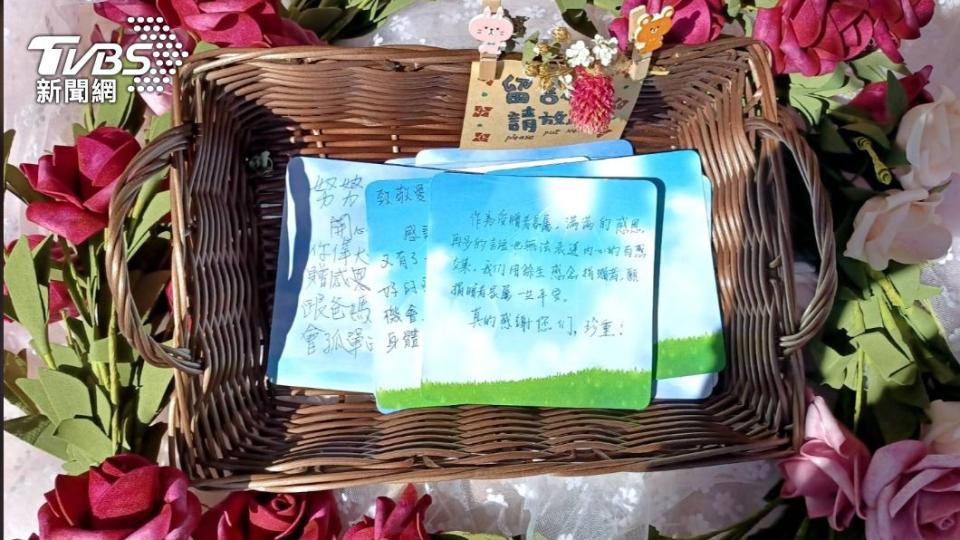 TVBS
新聞網
留言
請放
please put
努努
開心
你偉大
贈感恩
跟爸媽
會孤單
致敬愛
感
又有了一
好
機會
身體
作為受贈者家屬,滿滿的感恩,
再多的言語也無法表達內心的百感
交集,我們用餘生感念捐贈者,願
捐贈者家屬一生平安。
真的感謝你們,珍重!